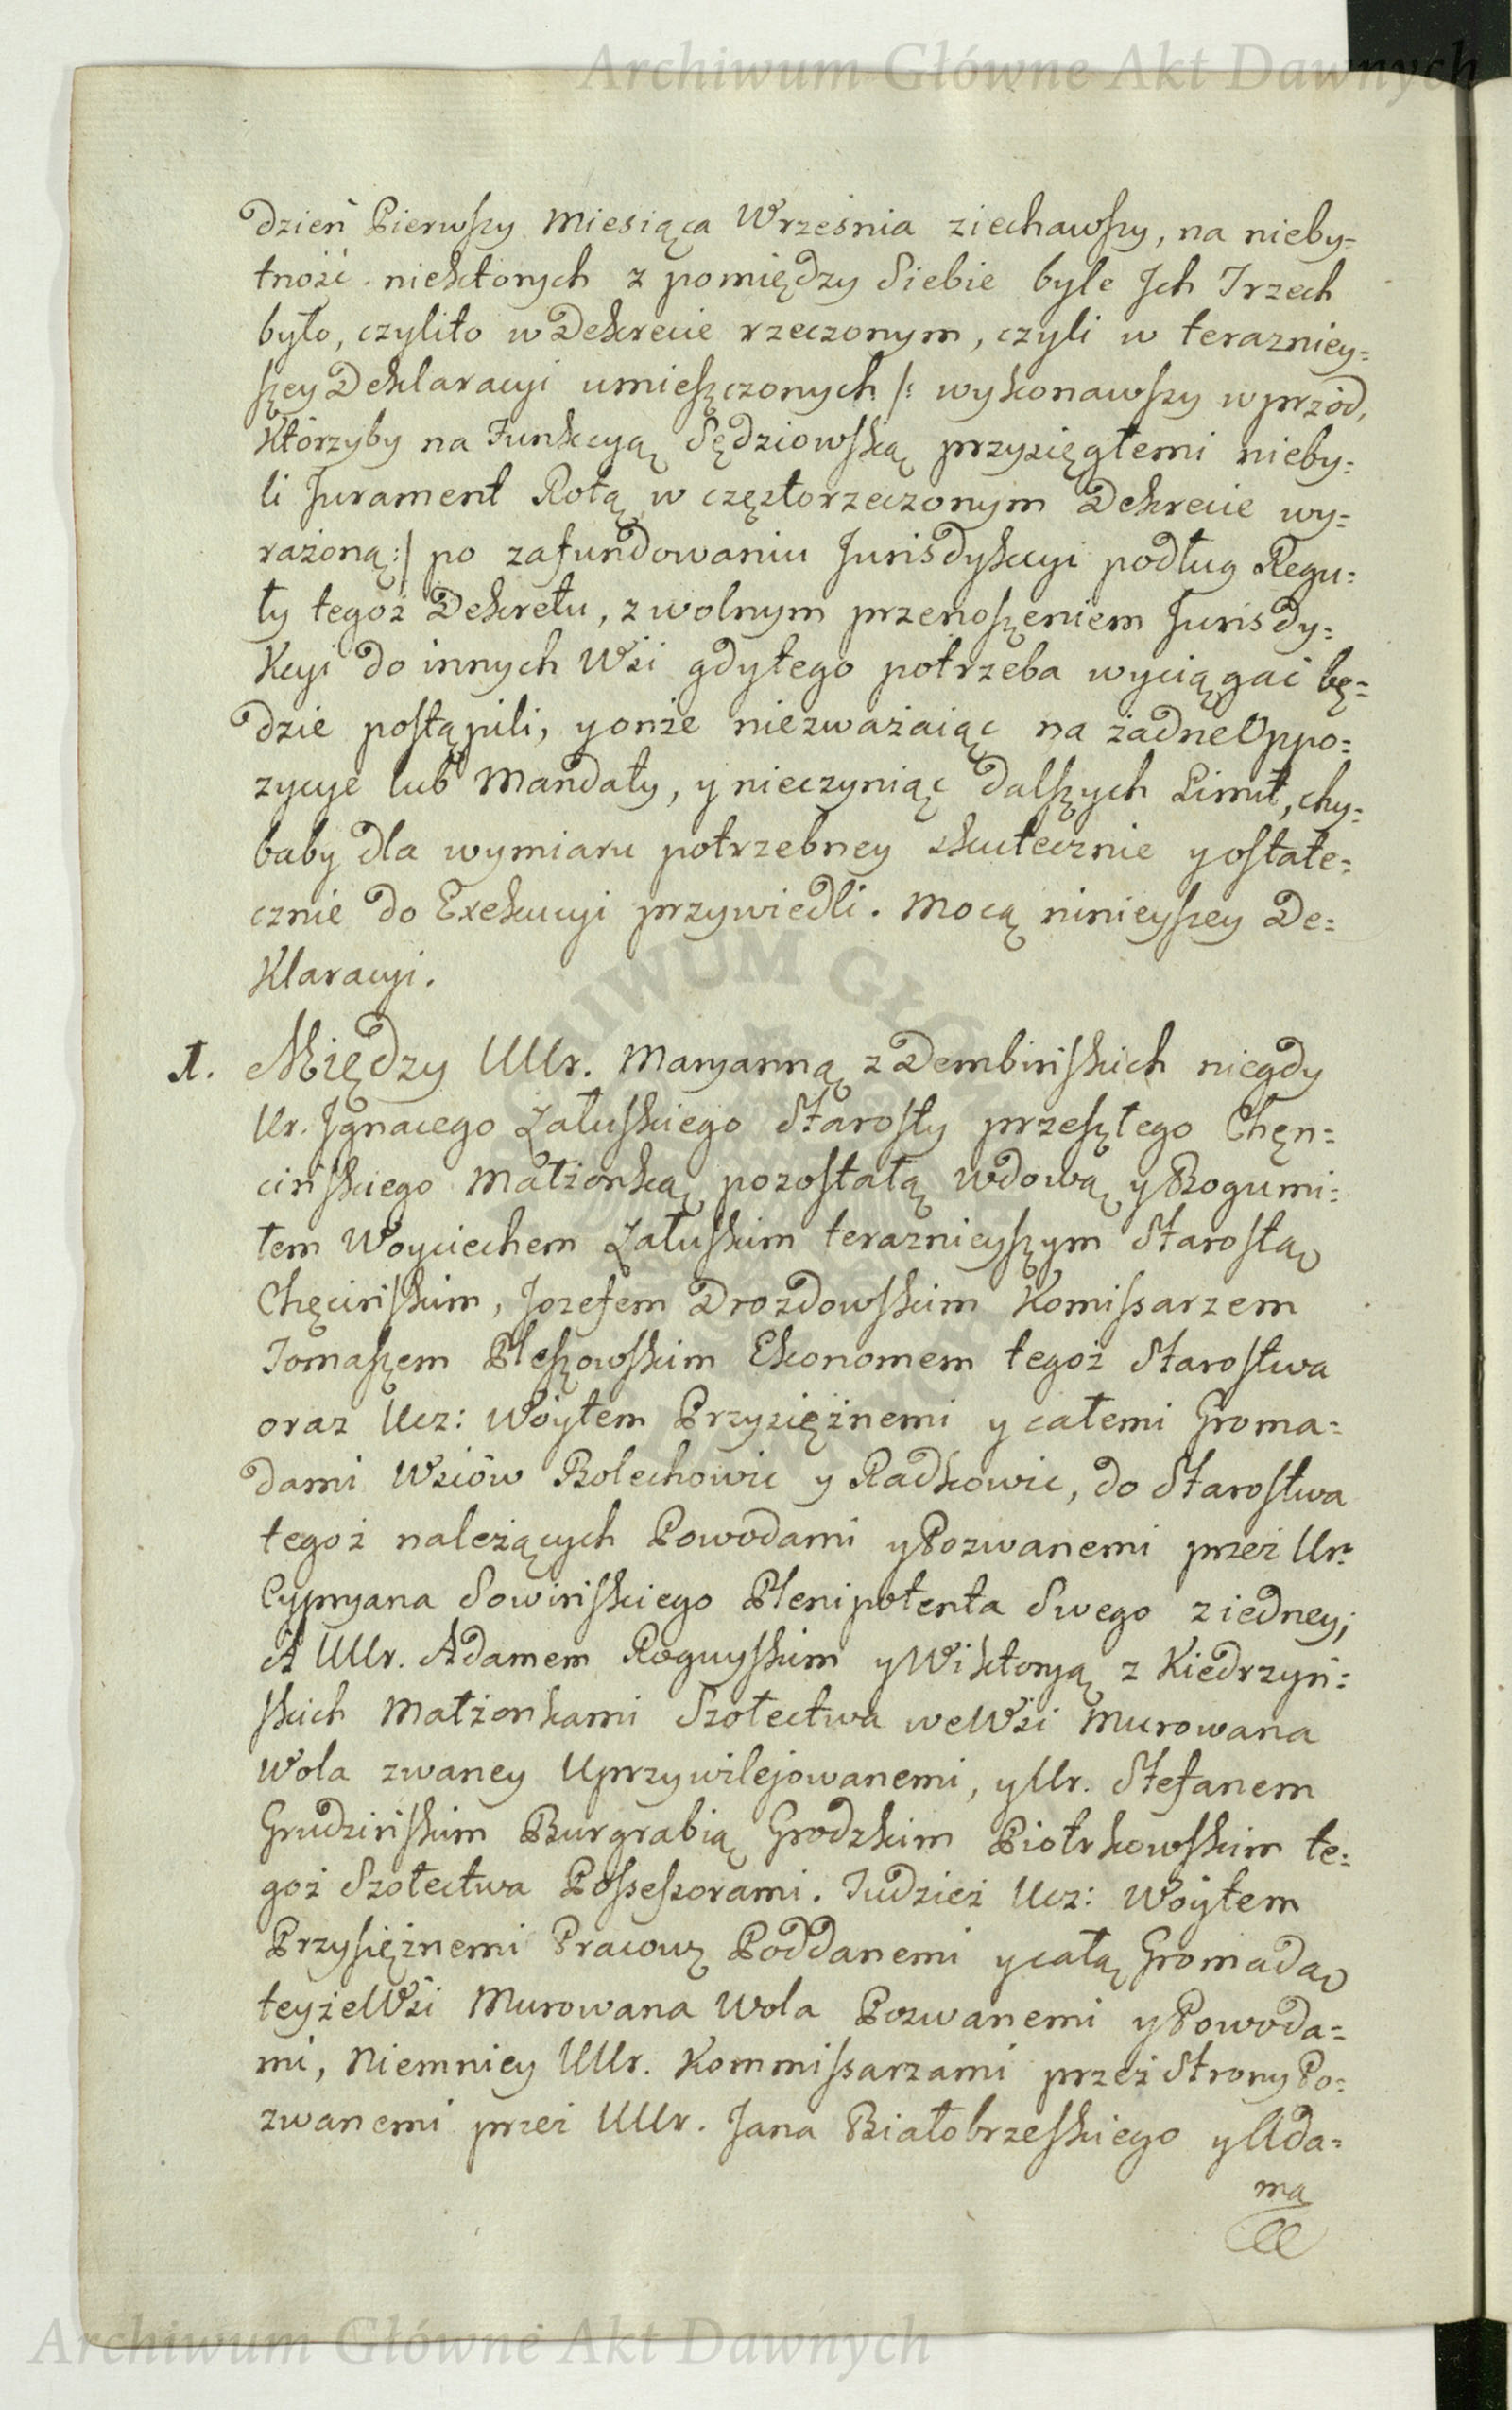 Archiwum Główne Akt Dawnych
dzień Pierwszy Miesiąca Września ziechawszy, na nieby=
tność niektórych z pomiędzy Siebie byle Jch Trzech
było, czylito w Dekrecie rzeczonym, czyli w terazniey=
szey Deklaracyi umieszczonych /: wykonawszy wprzód,
Którzyby na Funkcyą Sędziowską przysięgłemi nieby=
li Jurament Rotą w częstorzeczonym Dekrecie wy=
rażoną :/ po zafundowaniu Jurisdykcyi podług Regu=
ły tegoż Dekretu, z wolnym przenoszeniem Jurisdy=
Kcyi do innych Wsi gdytego potrzeba wyciągać bę=
dzie postąpili, y onże niezważaiąc na żadne Oppo=
zycye lub Mandaty, y nieczyniąc dalszych Limit, chy=
baby dla wymiaru potrzebney skutecznie y ostate=
cznie do Exekucyi przywiedli. Mocą ninieyszey De=
Klaracyi.
1. Między UUr. Maryanną z Dembińskich niegdy
Ur. Jgnacego Załuskiego Starosty przeszłego Chęn=
cińskiego Małżonką pozostałą Wdową y Bogumi=
łem Woyciechem Załuskim teraznieyszym Starostą
Chęcińskim, Jozefem Drozdowskim Komissarzem
Tomaszem Pleszowskim Ekonomem tegoż Starostwa
oraz Ucz: Woytem Przysiężnemi y całemi Groma=
dami Wsiów Bolechowic y Radkowic, do Starostwa
tegoż należących Powodami y Pozwanemi przez Ur.
Cypryana Sowińskiego Plenipotenta Swego z iedney;
A UUr. Adamem Roguyskim y Wiktoryą z Kiedrzyń=
skich Małżonkami Szołectwa we Wsi Murowana
Wola zwaney Uprzywilejowanemi, y Ur. Stefanem
Grudzińskim Burgrabią Grodzkim Piotrkowskim te=
goż Szołectwa Possessorami. Tudzież Ucz: Woytem
Przysiężnemi Pracowz Poddanemi y całą Gromadą
teyże Wsi Murowana Wola Pozwanemi y Powoda=
mi, Niemniey UUr. Kommissarzami przez Strony Po=
zwanemi przez UUr. Jana Białobrzeskiego y Ada=
ma
Archiwum Główne Akt Dawnych